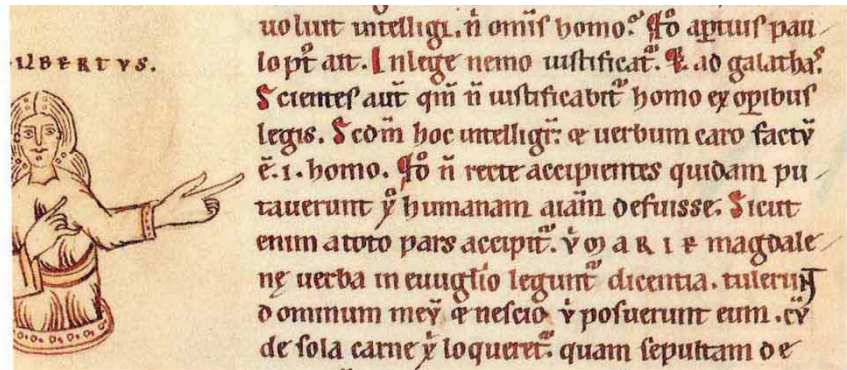 ILBERTVS.
uoluit intelligi. n̄ omīs homo. Qḋ aptius pau
lo pꝰt ait. In lege nemo iustificat᷑. Et ad galathas
Scientes aut̄ qm̄ n̄ iustificabit᷑ homo ex opibus
legis. Scdm̄ hoc intelligit᷑ & uerbum caro factū
ē. i. homo. Qḋ n̄ recte accipientes quidam pu
tauerunt xp̄i humanam aīam defuisse. Sicut
enim a toto pars accipit᷑. ut MARIE magdale
nę uerba in euuglio legunt᷑ dicentia. tulerunt
dominum meū & nescio ubi posuerunt eum. cū
de sola carne xp̄i loqueret᷑ quam sepultam de